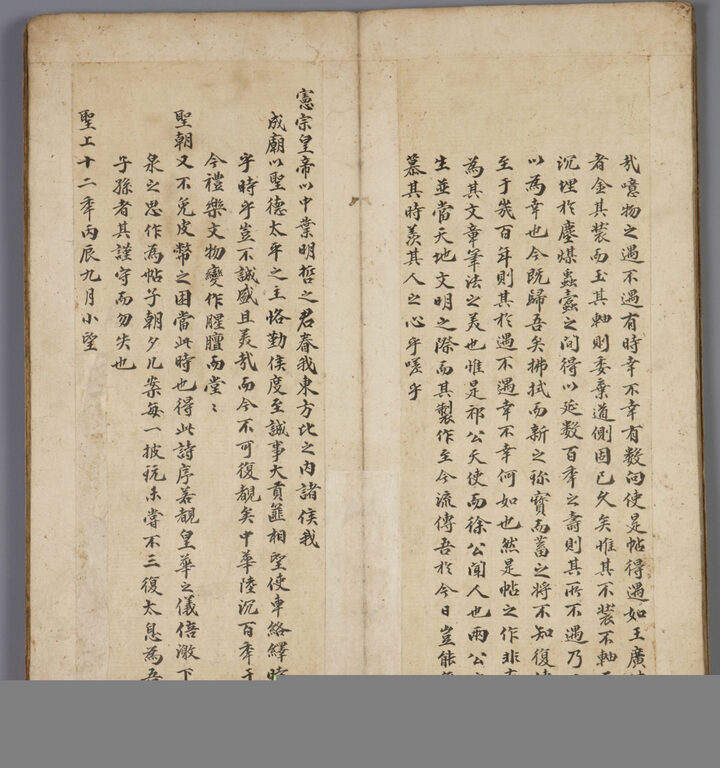 哉噫物之遇不遇有時幸不幸有数向使是帖得遇如王廣
者金其装而玉其軸則委棄道側固已久矣惟其不装不軸
沉埋於塵煤蟲蠹之間得以延数百年之壽則其所不遇乃
以為幸也今既歸吾矣拂拭而新之珎寳而蓄之将不知復
至于幾百年則其於遇不遇幸不幸何如也然是帖之作非
為其文章筆法之美也惟是祁公天使而徐公聞人也兩公
生並當天地文明之際而其製作至今流傳吾於今日豈能
慕其時羨其人之心乎嗟乎
憲宗皇帝以中葉明哲之君眷我東方比之内諸侯我
成廟以聖德太平之主恪勤侯度至誠事大貢篚相望使車絡繹
乎時乎豈不誠盛且美哉而今不可復覩矣中華陸沉百年于
今禮樂文物變作腥膻而堂〻
聖朝又不免皮幣之困當此時也得此詩序若覩皇華之儀倍激下
泉之思作為帖子朝夕几案每一披玩未甞不三復太息為吾
子孫者其謹守而勿失也
聖上十二年丙辰九月小望